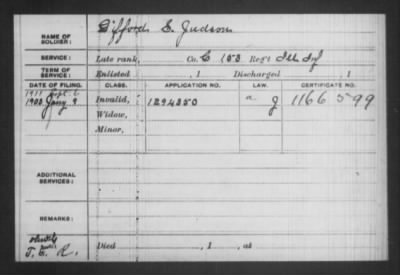 NAME OF SOLDIER: Gifford S. Judson
SERVICE: Late rank, Co. C 153 Reg't Ill. Inf
TERM OF SERVICE: Enlisted , 1 Discharged , 1
DATE OF FILING. CLASS. APPLICATION NO. LAW. CERTIFICATE NO.
1911 Sept. 6
1903 Jany 9 Invalid, 1294350 a g 1166599
Widow,
Minor,
ADDITIONAL SERVICES:
REMARKS:
Died , 1 , at